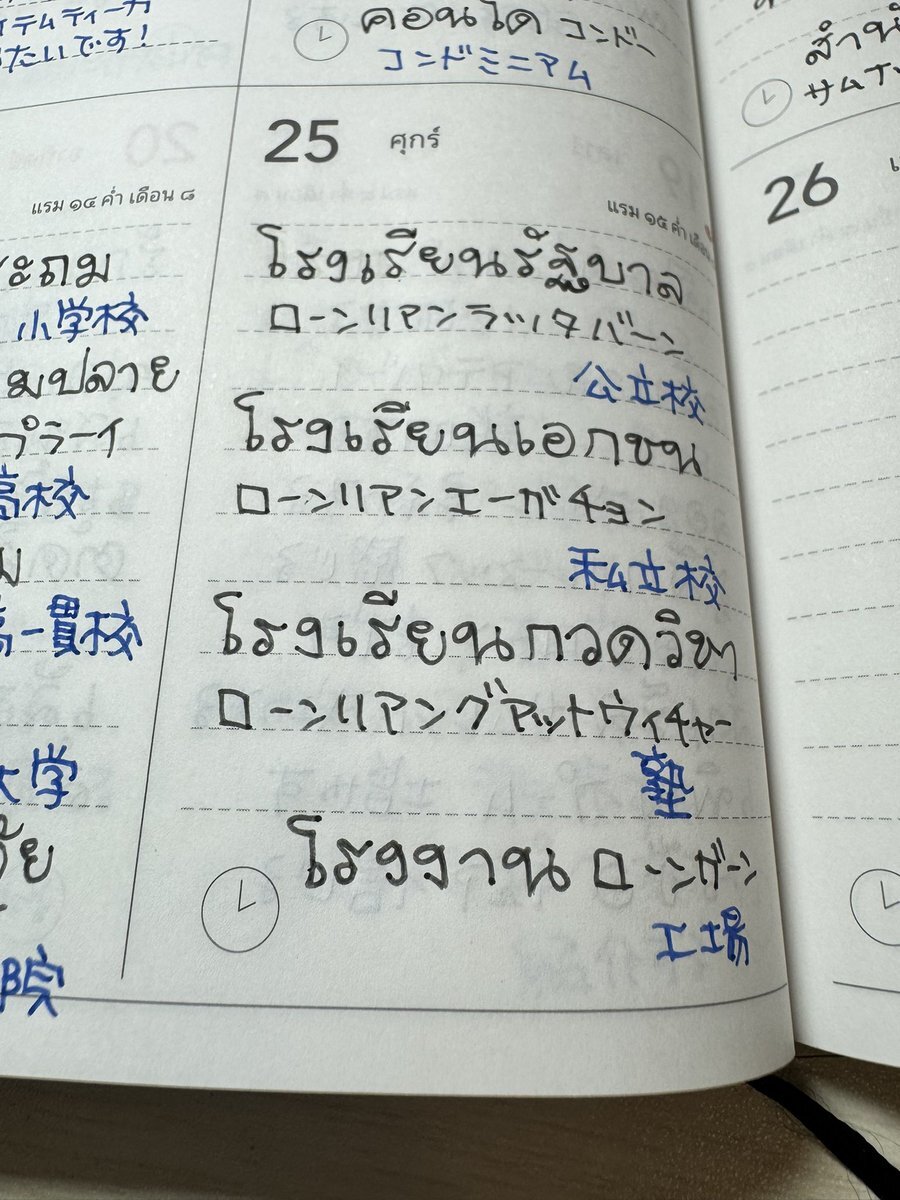 イテムティーカ
たいです!
คอนโด コンドー
コンドミニアム
สำนั
サムナ
20
25 ศุกร์
26
แรม ๑๔ ค่ำ เดือน ๘
แรม ๑๕ ค่ำ เดือ
ระถม
小学校
มปลาย
プラーイ
高校
ม
高一貫校
大学
ัย
院
โรงเรียนรัฐบาล
ローンリアンラッタバーン
公立校
โรงเรียนเอกชน
ローンリアンエーガチョン
私立校
โรงเรียนกวดวิชา
ローンリアングアットウィチャー
塾
โรงงาน ローンガーン
工場